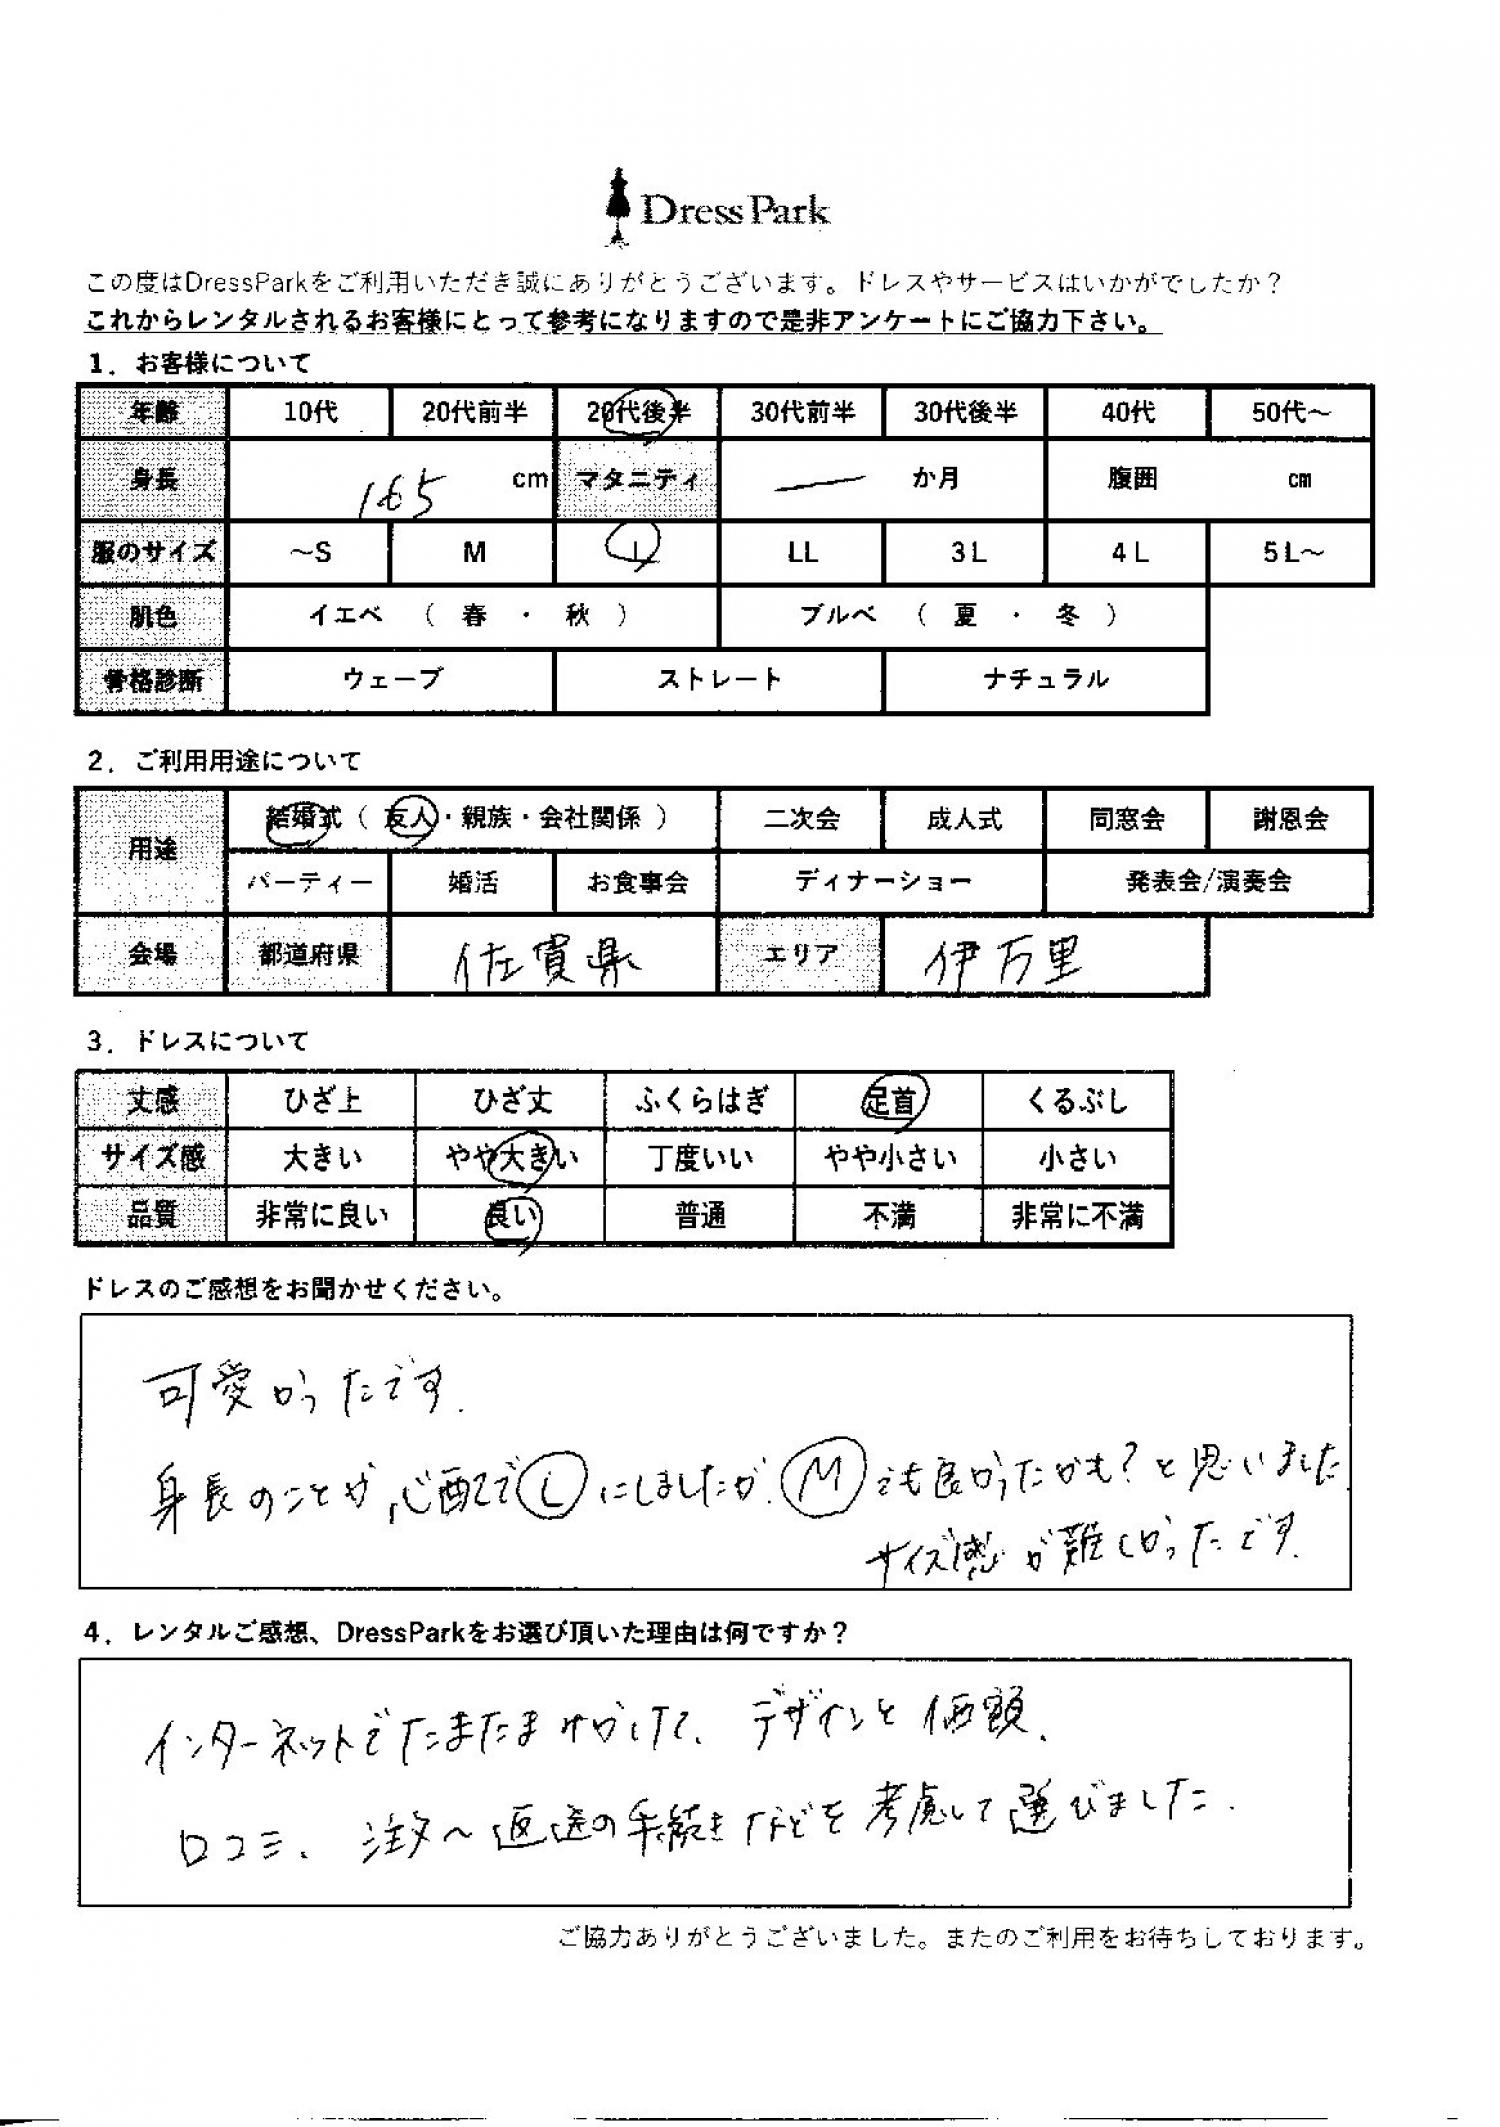 DressPark
この度はDressParkをご利用いただき誠にありがとうございます。ドレスやサービスはいかがでしたか？
これからレンタルされるお客様にとって参考になりますので是非アンケートにご協力下さい。
1．お客様について
年齢 10代 20代前半 20代後半 30代前半 30代後半 40代 50代～
身長 165 cm マタニティ か月 腹囲 cm
服のサイズ ～S M L LL 3L 4L 5L～
肌色 イエベ （ 春 ・ 秋 ） ブルベ （ 夏 ・ 冬 ）
骨格診断 ウェーブ ストレート ナチュラル
2．ご利用用途について
用途 結婚式（ 友人・親族・会社関係 ） 二次会 成人式 同窓会 謝恩会
パーティー 婚活 お食事会 ディナーショー 発表会/演奏会
会場 都道府県 佐賀県 エリア 伊万里
3．ドレスについて
丈感 ひざ上 ひざ丈 ふくらはぎ 足首 くるぶし
サイズ感 大きい やや大きい 丁度いい やや小さい 小さい
品質 非常に良い 良い 普通 不満 非常に不満
ドレスのご感想をお聞かせください。
可愛かったです.
身長のことが心配でLにしましたが、Mでも良かったかも？と思いました
サイズ感が難しかったです.
4．レンタルご感想、DressParkをお選び頂いた理由は何ですか？
インターネットでたまたま 、デザインと価額、
口コミ、注文～返送の手続きなどを考慮して選びました.
ご協力ありがとうございました。またのご利用をお待ちしております。